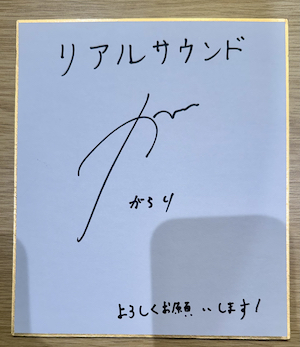 リアルサウンド
がらり
よろしくお願いします!